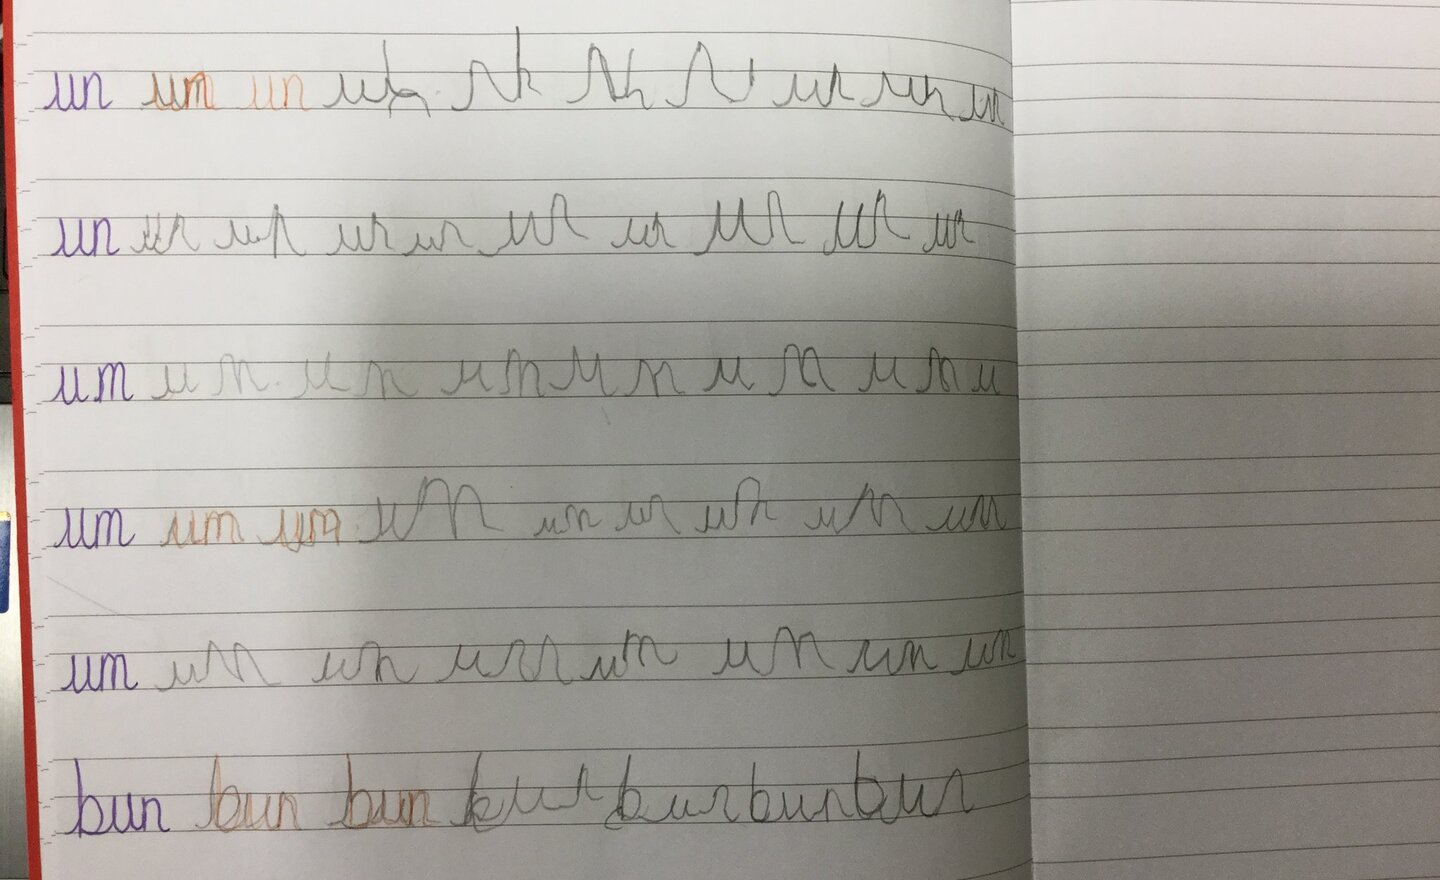 un um un un un un un un un un
un un un un un un un un un un
um u m u m u m u m u m u m u
um um um um um um um um um
um um um um um um um um
bun bun bun bun bun bun bun